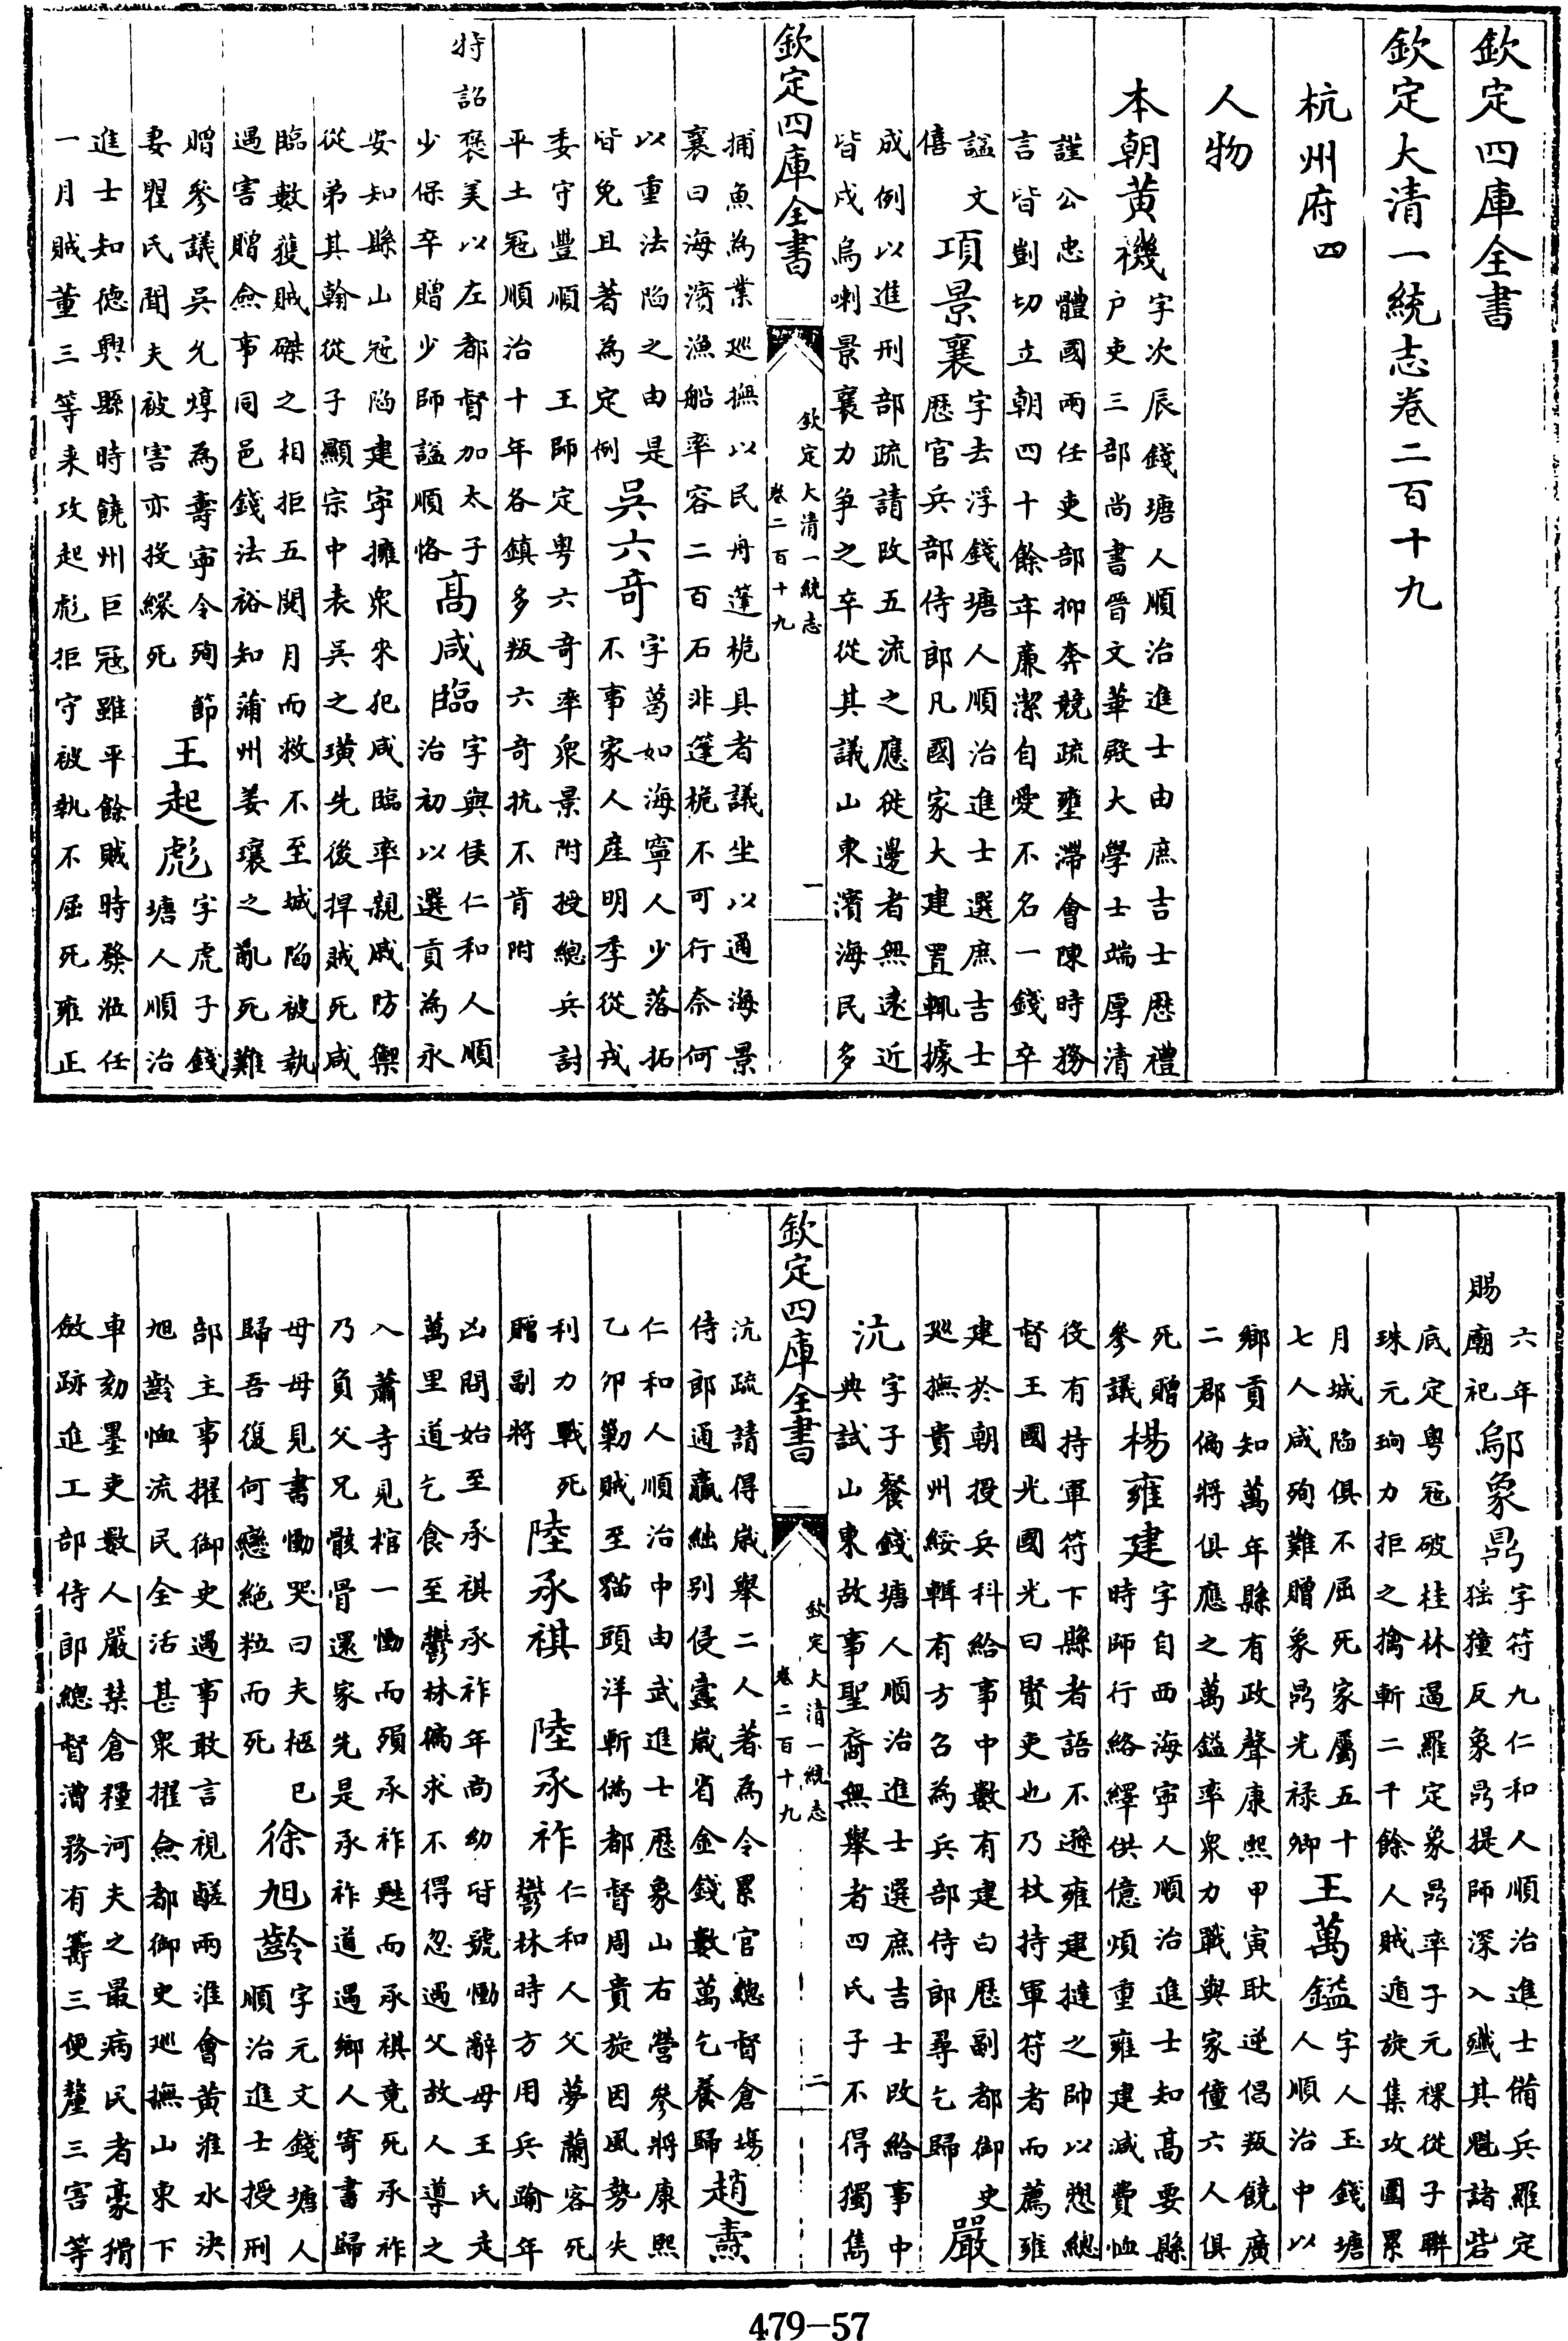 欽定四庫全書
欽定大清一統志卷二百十九
杭州府四
人物
本朝黃機
字次辰錢塘人順治進士由庶吉士歴禮
户吏三部尚書晉文華殿大學士端厚清
謹公忠體國兩任吏部抑奔競疏壅滯會陳時務
言皆剴切立朝四十餘年亷潔自愛不名一錢卒
諡文
僖
項景襄
字去浮錢塘人順治進士選庶吉士
歴官兵部侍郎凡國家大建置輒據
成例以進刑部疏請改五流之應徙邊者無逺近
皆戍烏喇景襄力爭之卒從其議山東濱海民多
欽定四庫全書
欽定大清一統志
卷二百十九
一
捕魚為業廵撫以民舟蓬桅具者議坐以通海景
襄曰海濱漁船率容二百石非篷桅不可行奈何
以重法陷之由是
皆免且著為定例
吳六竒
字葛如海寧人少落拓
不事家人產明季從戎
委守豐順王師定粤六竒率衆景附授總兵討
平土冦順治十年各鎮多叛六竒抗不肯附
特詔褒美以左都督加太子
少保卒贈少師諡順恪
高咸臨
字與侯仁和人順
治初以選貢為永
安知縣山冦陷建寧擁衆來犯咸臨率親戚防禦
從弟其翰從子顯宗中表吳之璜先後捍賊死咸
臨數獲賊磔之相拒五閱月而救不至城陷被執
遇害贈僉事同邑錢法裕知蒲州姜瓖之亂死難
贈參議吳允焞為壽寧令殉節
妻瞿氏聞夫被害亦投繯死
王起彪
字虎子錢
塘人順治
進士知德興縣時饒州巨冦雖平餘賊時發涖任
一月賊董三等来攻起彪拒守被執不屈死雍正
六年
賜廟祀
鄔象鼎
字符九仁和人順治進士備兵羅定
猺獞反象鼎提師深入殲其魁諸砦
底定粤冦破桂林逼羅定象鼎率子元祼從子聯
珠元珣力拒之擒斬二千餘人賊遁旋集攻圍累
月城陷俱不屈死家屬五十
七人咸殉難贈象鼎光禄卿
王萬鎰
字人玉錢塘
人順治中以
鄉貢知萬年縣有政聲康熙甲寅耿逆倡叛饒廣
二郡偏將俱應之萬鎰率衆力戰與家僮六人俱
死贈
參議
楊雍建
字自西海寧人順治進士知高要縣
時師行絡繹供億煩重雍建減費恤
役有持軍符下縣者語不遜雍建撻之帥以愬總
督王國光國光曰賢吏也乃杖持軍符者而薦雍
建於朝授兵科給事中數有建白歴副都御史
廵撫貴州綏輯有方召為兵部侍郎尋乞歸
嚴沆
字子餐錢塘人順治進士選庶吉士改給事中
典試山東故事聖裔無舉者四氏子不得獨雋
欽定四庫全書
欽定大清一統志
卷二百十九
二
沆疏請得歲舉二人著為令累官總督倉場
侍郎通贏絀别侵蠧歲省金錢數萬乞養歸
趙燾
仁和人順治中由武進士歴象山右營參將康熙
乙卯勦賊至猫頭洋斬偽都督周貴旋因風勢失
利力戰死
贈副將
陸承祺
陸承祚
仁和人父夢蘭客死
鬱林時方用兵踰年
凶問始至承祺承祚年尚幼皆號慟辭母王氏走
萬里道乞食至鬱林徧求不得忽遇父故人導之
入蕭寺見棺一慟而殞承祚甦而承祺竟死承祚
乃負父兄骸骨還家先是承祚道遇鄉人寄書歸
母母見書慟哭曰夫柩已
歸吾復何戀絶粒而死
徐旭齡
字元文錢塘人
順治進士授刑
部主事擢御史遇事敢言視鹺兩淮會黃淮水決
旭齡恤流民全活甚衆擢僉都御史廵撫山東下
車劾墨吏數人嚴禁倉糧河夫之最病民者豪猾
斂跡進工部侍郎總督漕務有籌三便釐三害等
479-57